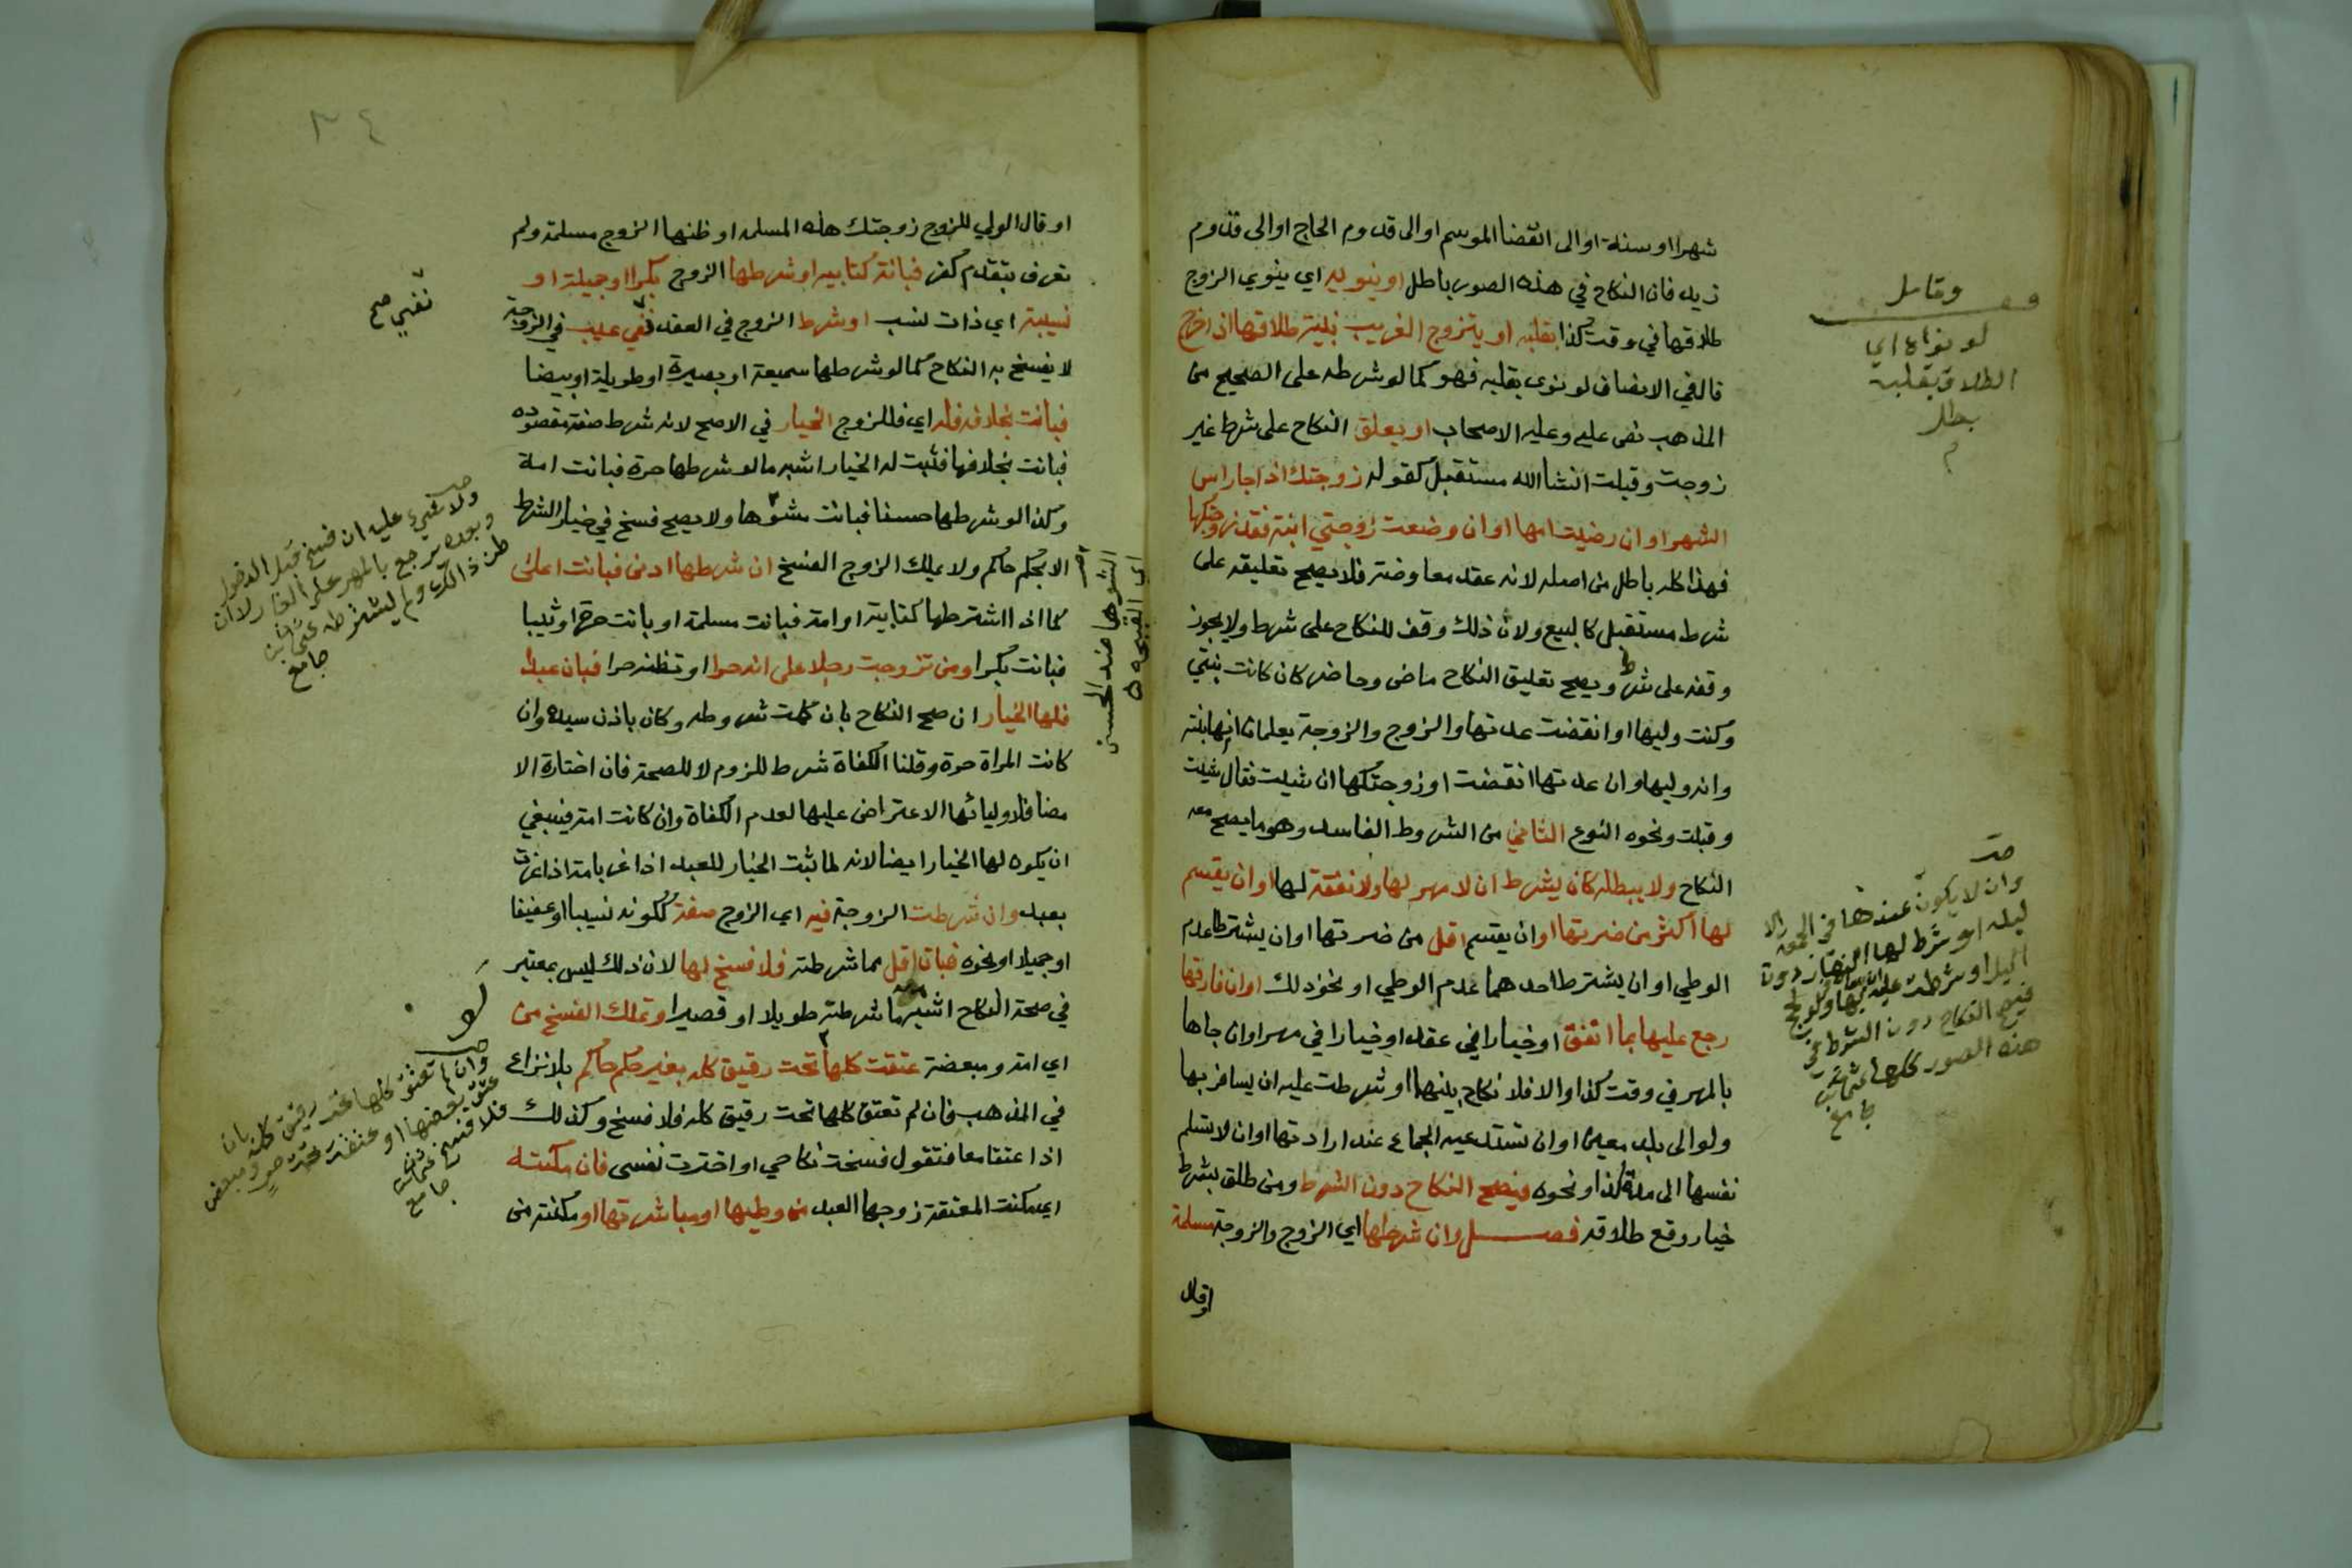 شهرا او سنة او الى انقضا الموسم او الى قدوم الحاج او الى قدوم
زيد فان النكاح في هذه الصور باطل او ينويه اي ينوي الزوج
طلاقها في وقت كذا بقلبه او يتزوج الغريب بنية طلاقها اذا خرج
قال في الانصاف لو نوى بقلبه فهو كما لو شرطه على الصحيح من
المذهب نص عليه وعليه الاصحاب او يعلق النكاح على شرط غير
زوجت وقبلت انشا الله مستقبل كقوله زوجتك اذا جا راس
الشهر او ان رضيت امها او ان وضعت زوجتي ابنة فقد زوجتكها
فهذا كله باطل من اصله لانه عقد معاوضة فلا يصح تعليقه على
شرط مستقبل كالبيع ولان ذلك وقف للنكاح على شرط ولا يجوز
وقفه على شرط ويصح تعليق النكاح ماضي وحاضر كان كانت بنتي
وكنت وليها او انقضت عدتها والزوج والزوجة يعلمان انها بنته
وانه وليها وان عدتها انقضت او زوجتكها ان شيت فقال شيت
وقبلت ونحوه النوع الثاني من الشروط الفاسد وهو ما يصح معه
النكاح ولا يبطله كان يشرط ان لا مهر لها ولا نفقة لها او ان يقسم
لها اكثر من ضرتها او ان يقسم اقل من ضرتها او ان يشترطا عدم
الوطي او ان يشترط احدهما عدم الوطي او نحو ذلك او ان فارقها
رجع عليها بما انفق او خيارا في عقد او خيارا في مهر او ان جاها
بالمهر في وقت كذا والا فلا نكاح بينهما او شرطت عليه ان يسافر بها
ولو الى بلد معين او ان تستدعيه الجماع عند ارادتها او ان لا تسلم
نفسها الى مدة كذا ونحوه فيصح النكاح دون الشرط ومن طلق بشرط
خيار وقع طلاقه فصل وان شرطها اي الزوج والزوجة مسلمة
او قال
لو نواه اي
الطلاق بقلبه
بطل
وان لا يكون عندها في الجمعة الا
ليلة او شرط لها النهار دون
الليل او شرطت عليه
فيصح النكاح دون الشرط في
هذه الصور كلها
٣٤
او قال الولي للزوج زوجتك هذه المسلمه او ظنها الزوج مسلمة ولم
تعرف بتقدم كفر فبانت كتابيه او شرطها الزوج بكرا او جميلة او
نسيبة اي ذات نسب او شرط الزوج في العقد نفي عيب في الزوجة
لا يفسخ به النكاح كما لو شرطها سميعة او بصيرة او طويلة او بيضا
فبانت بخلافه فله اي فللزوج الخيار في الاصح لانه شرط صفة مقصوده
فبانت بخلافها فثبت له الخيار اشبه ما لو شرطها حرة فبانت امة
وكذا لو شرطها حسنا فبانت شوها ولا يصح فسخ في خيار الشرط
الا بحكم حاكم ولا يملك الزوج الفسخ ان شرطها ادنى فبانت اعلى
كما اذا اشترطها كتابية او امة فبانت مسلمة او بانت حرة او ثيبا
فبانت بكرا ومن تزوجت رجلا على انه حرا او تظنه حرا فبان عبدا
فلها الخيار ان صح النكاح بان كملت شروطه وكان باذن سيده وان
كانت المراة حرة وقلنا الكفاة شرط للزوم لا للصحة فان اختارة الا
مضا فلاوليائها الاعتراض عليها لعدم الكفاة وان كانت امة فينبغي
ان يكون لها الخيار ايضا لانه لما ثبت الخيار للعبد اذا غر بامة اذا غرت
بعبد وان شرطت الزوجة فيه اي الزوج صفة ككونه نسيبا او عفيفا
او جميلا او نحوه فبان اقل مما شرطته فلا فسخ لها لان ذلك ليس بمعتبر
في صحة النكاح اشبه ما شرطته طويلا او قصيرا وتملك الفسخ من
اي امة ومبعضة عتقت كلها تحت رقيق كله بغير حكم حاكم بلا نزاع
في المذهب فان لم تعتق كلها تحت رقيق كله فلا فسخ وكذلك
اذا عتقا معا فتقول فسخت نكاحي او اخترت نفسي فان مكنته
اي مكنت المعتقة زوجها العبد من وطيها او مباشرتها او مكنته من
نفي صح
ولا شيء عليه ان فسخ قبل الدخول
وبعده يرجع بالمهر على الغار
جامع
الشوها ضد الحسن
اي القبيحه
وان لم تعتق كلها تحت رقيق كله بان
عتق بعضها او عتقت تحت حر ومبعض
فلا فسخ
جامع